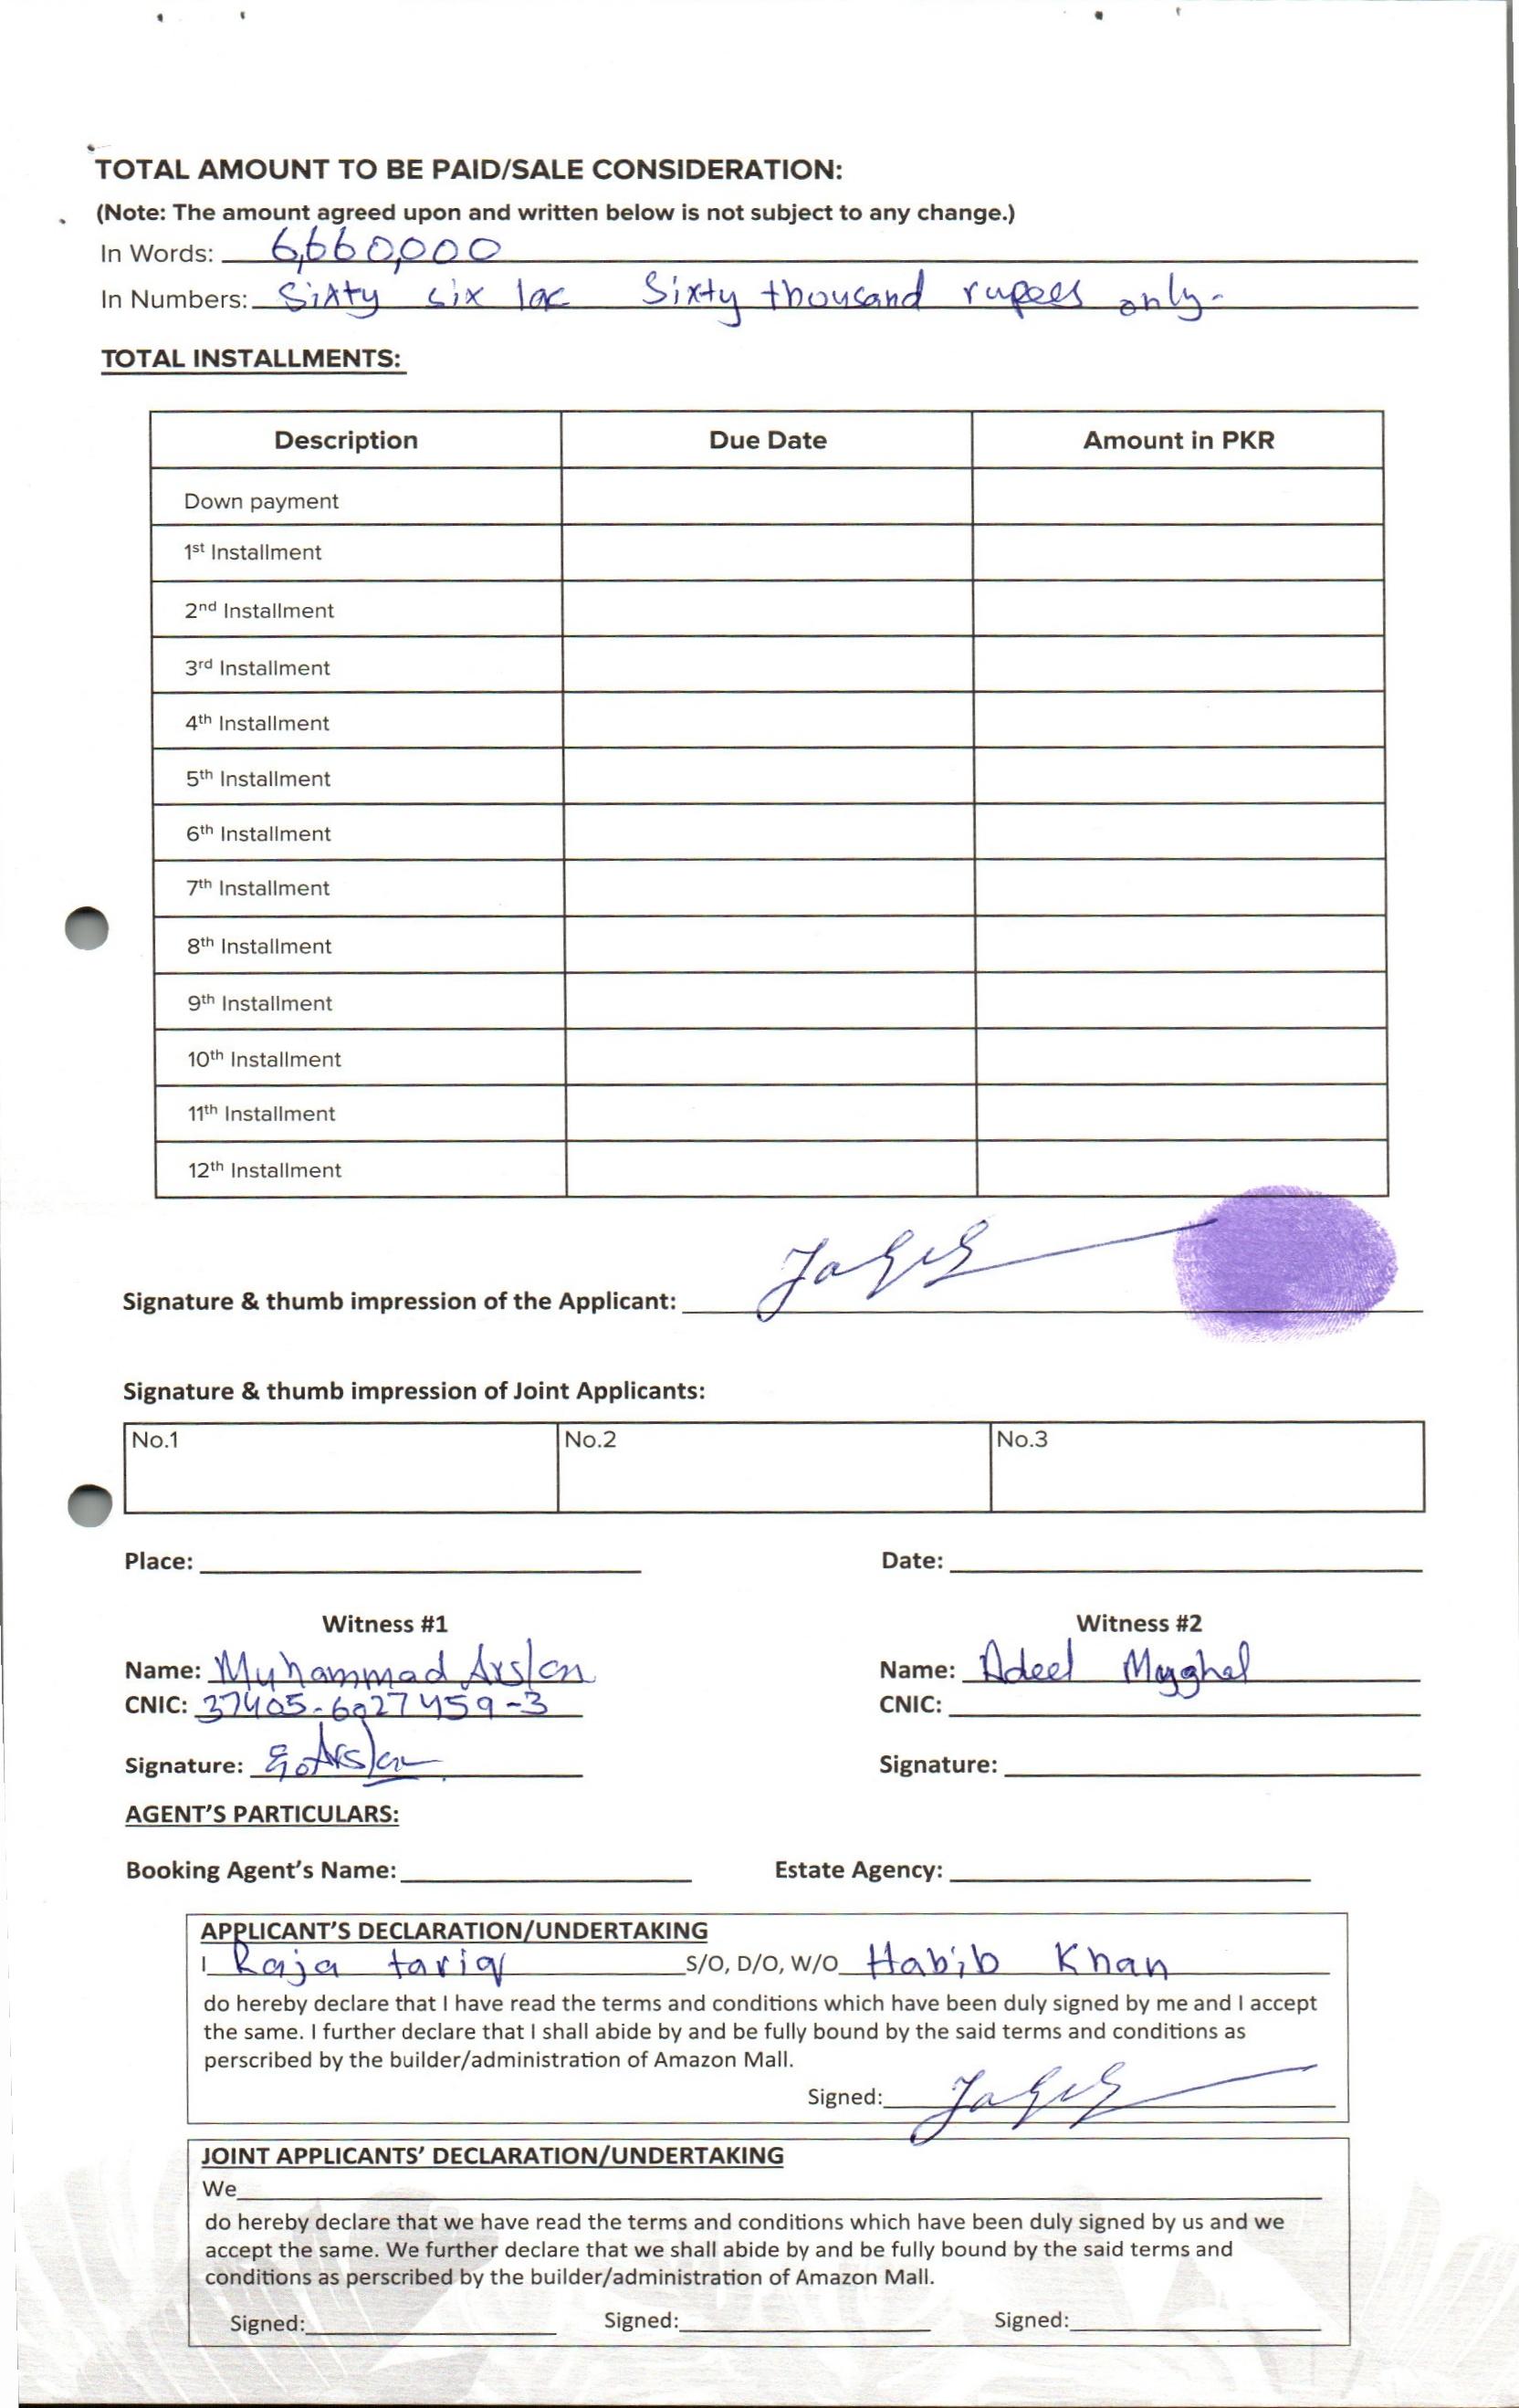 TOTAL AMOUNT TO BE PAID/SALE CONSIDERATION:
(Note: The amount agreed upon and written below is not subject to any change.)
In Words: 6,660,000
In Numbers: Sixty six lac Sixty thousand rupees only-
TOTAL INSTALLMENTS:
Description Due Date Amount in PKR
Down payment
1st Installment
2nd Installment
3rd Installment
4th Installment
5th Installment
6th Installment
7th Installment
8th Installment
9th Installment
10th Installment
11th Installment
12th Installment
Signature & thumb impression of the Applicant:
Signature & thumb impression of Joint Applicants:
No.1 No.2 No.3
Place: Date:
Witness #1 Witness #2
Name: Muhammad Arslan Name: Adeel Mughal
CNIC: 37405-6027459-3 CNIC:
Signature: Arslan Signature:
AGENT'S PARTICULARS:
Booking Agent's Name: Estate Agency:
APPLICANT'S DECLARATION/UNDERTAKING
I Raja tariq S/O, D/O, W/O Habib Khan
do hereby declare that I have read the terms and conditions which have been duly signed by me and I accept
the same. I further declare that I shall abide by and be fully bound by the said terms and conditions as
perscribed by the builder/administration of Amazon Mall.
Signed:
JOINT APPLICANTS' DECLARATION/UNDERTAKING
We
do hereby declare that we have read the terms and conditions which have been duly signed by us and we
accept the same. We further declare that we shall abide by and be fully bound by the said terms and
conditions as perscribed by the builder/administration of Amazon Mall.
Signed: Signed: Signed: